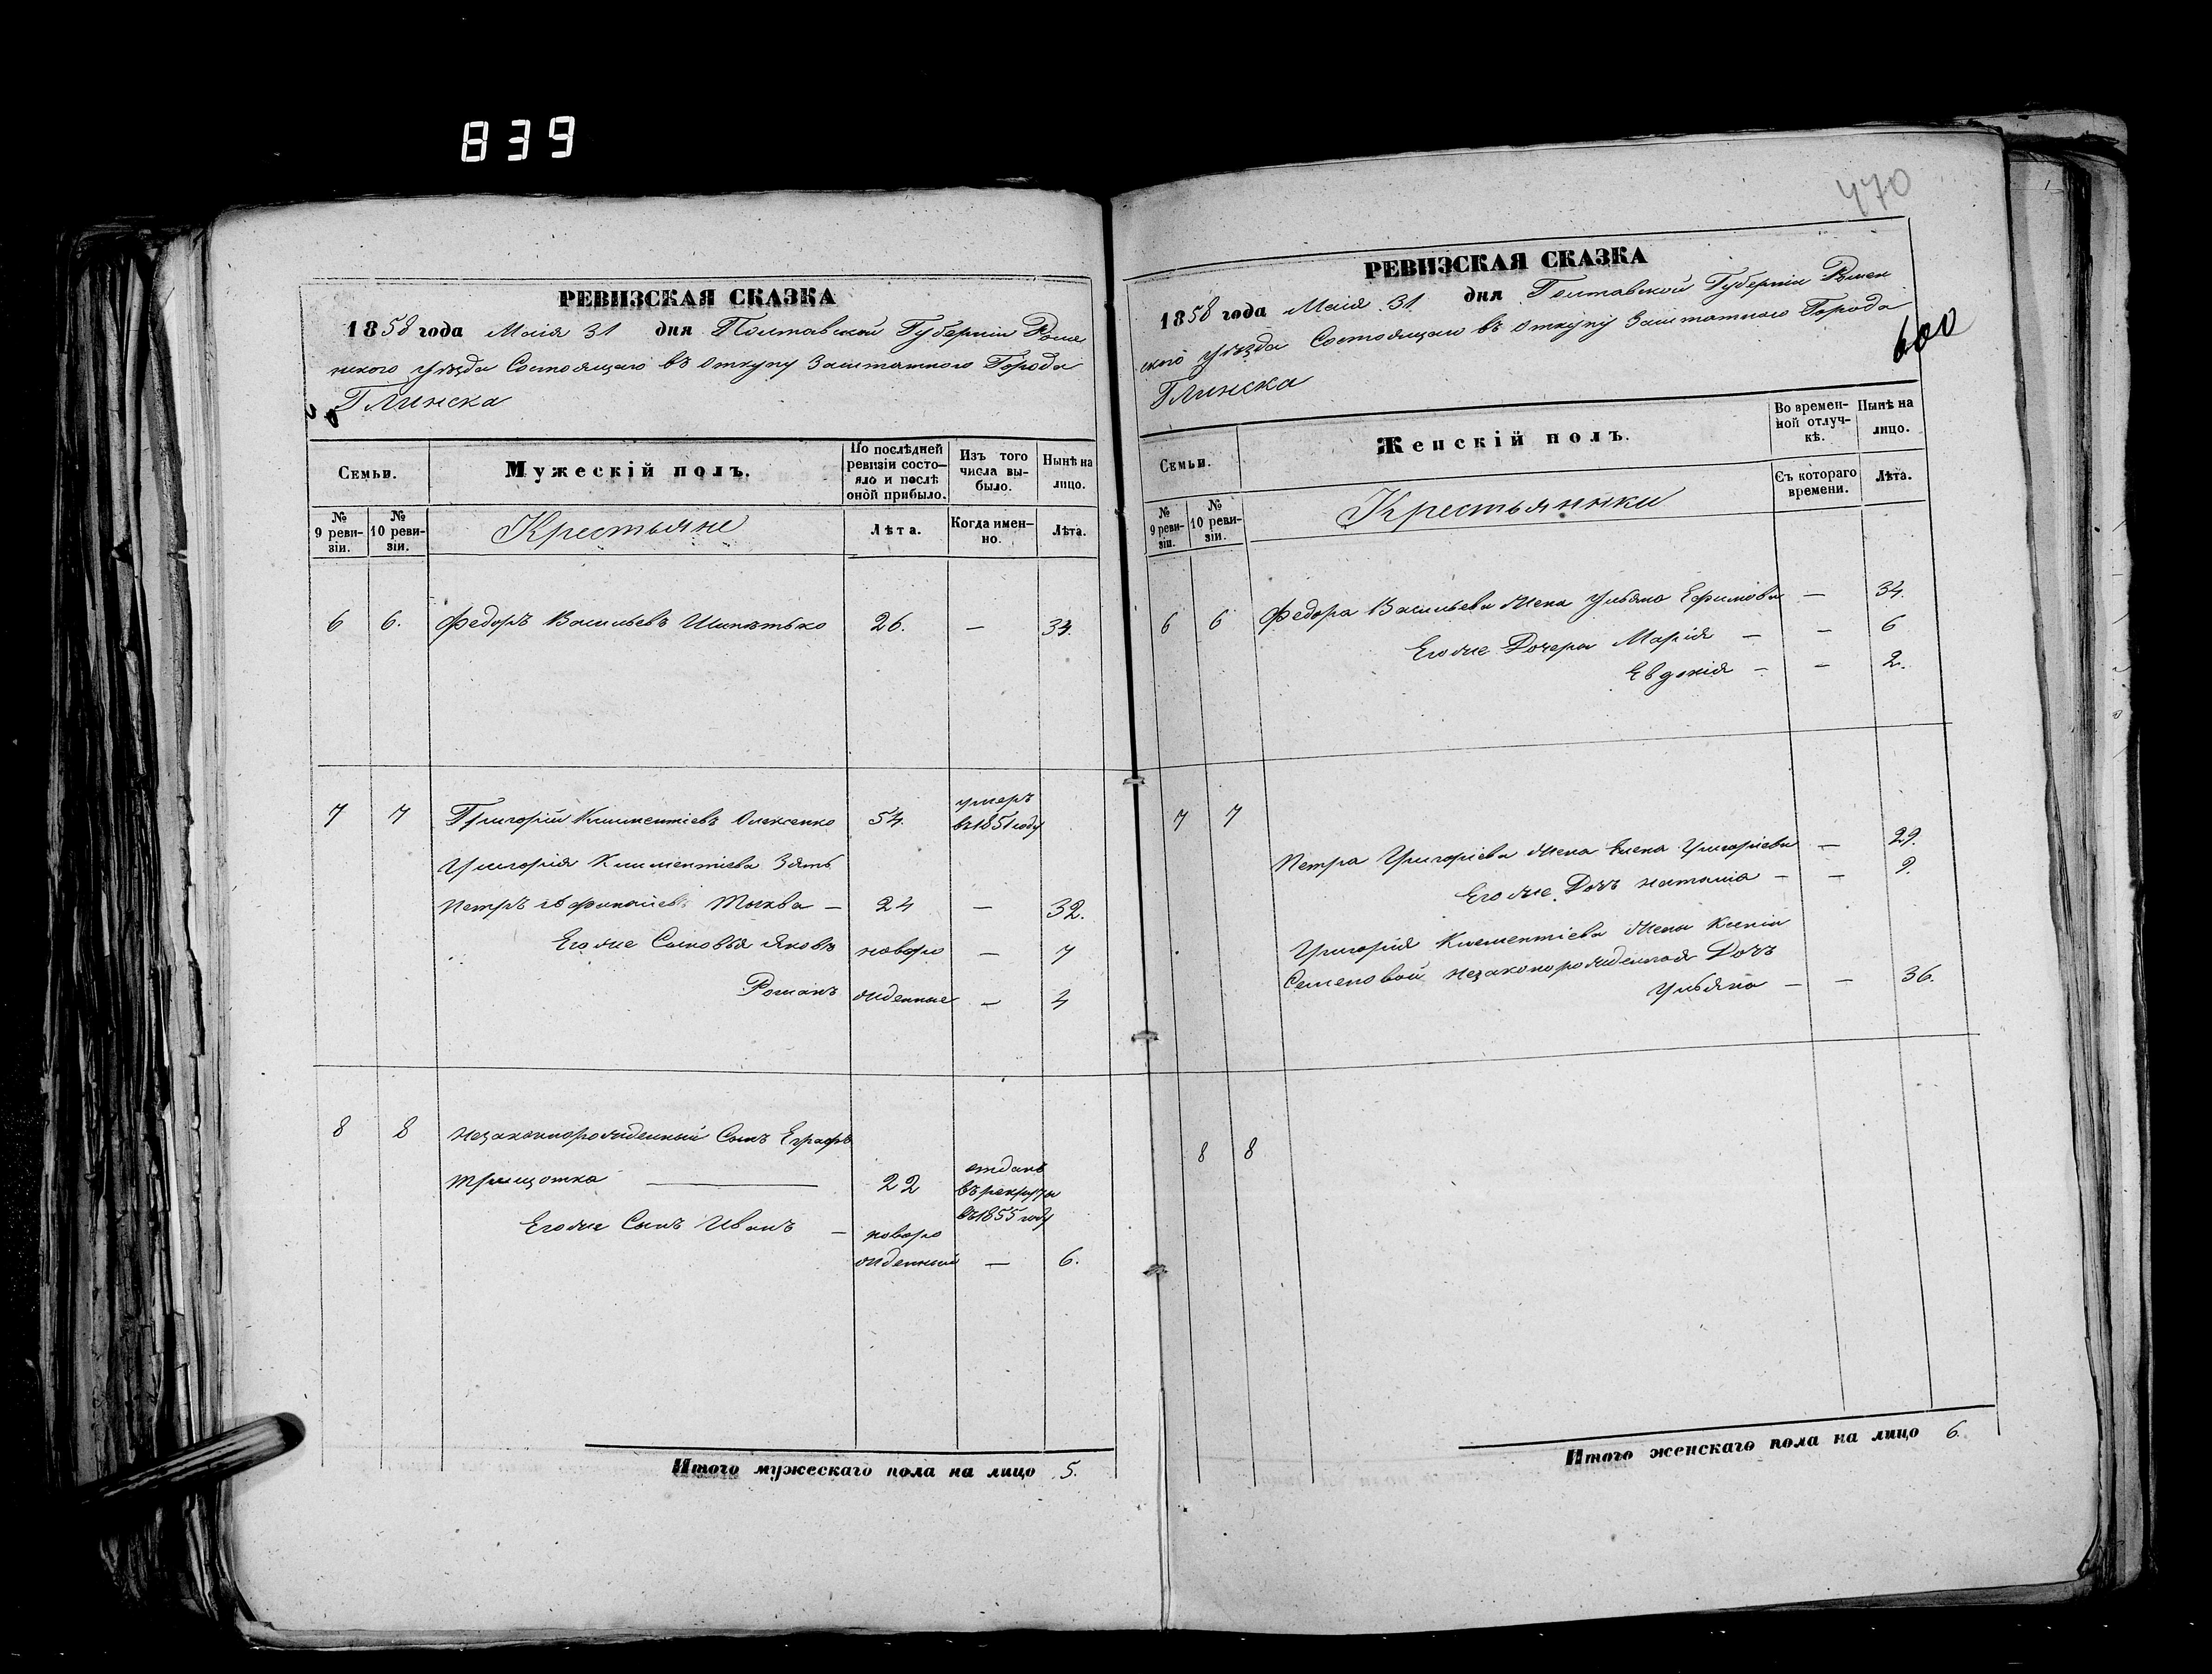 839
РЕВИЗСКАЯ СКАЗКА
1858 года Маія 31 дня Полтавской Губерніи Роме
нскаго уѣзда Состоящаго въ откупу Заштатнаго Города
Глинска
Семьи.
Мужескій полъ.
По послѣдней ревизіи состояло и послѣ оной прибыло.
Изъ того числа выбыло.
Нынѣ на лицо.
№ 9 ревизіи.
№ 10 ревизіи.
Крестьяне
Лѣта.
Когда именно.
Лѣта.
6 6. Федоръ Васильевъ 26. — 34.
7 7 Григорій Климентіевъ Олексенко 54. умеръ въ 1851 году
Григорія Климентіева Зять
Петръ Москва — 24 — 32.
Его же Сыновья Яковъ новоро — 7
Романъ жденные — 4
8 8 Незаконнорожденный Сынъ Еграфъ
Трищотка 22 отданъ въ рекруты въ 1855 году
Его же Сынъ Иванъ — новоро
жденный — 6.
Итого мужескаго пола на лицо 5.
470
РЕВИЗСКАЯ СКАЗКА
1858 года Маія 31 дня Полтавской Губерніи Ромен
скаго уѣзда Состоящаго въ откупу Заштатнаго Города
Глинска
600
Семьи.
Женскій полъ.
Во временной отлучкѣ.
Нынѣ на лицо.
№ 9 ревизіи.
№ 10 ревизіи.
Крестьянки
Съ котораго времени.
Лѣта.
6 6 Федора Васильева Жена Ульяна Ефимова — 34.
Его же Дочери Марія — — 6
Евдокія — — 2.
7 7
Петра Григоріева Жена Елена Григоріева — 29.
Его же Дочь Наталія — — 9.
Григорія Климентіева Жены Ксеніи
Семеновой незаконорожденная Дочь
Ульяна — — 36.
8 8
Итого женскаго пола на лицо 6.